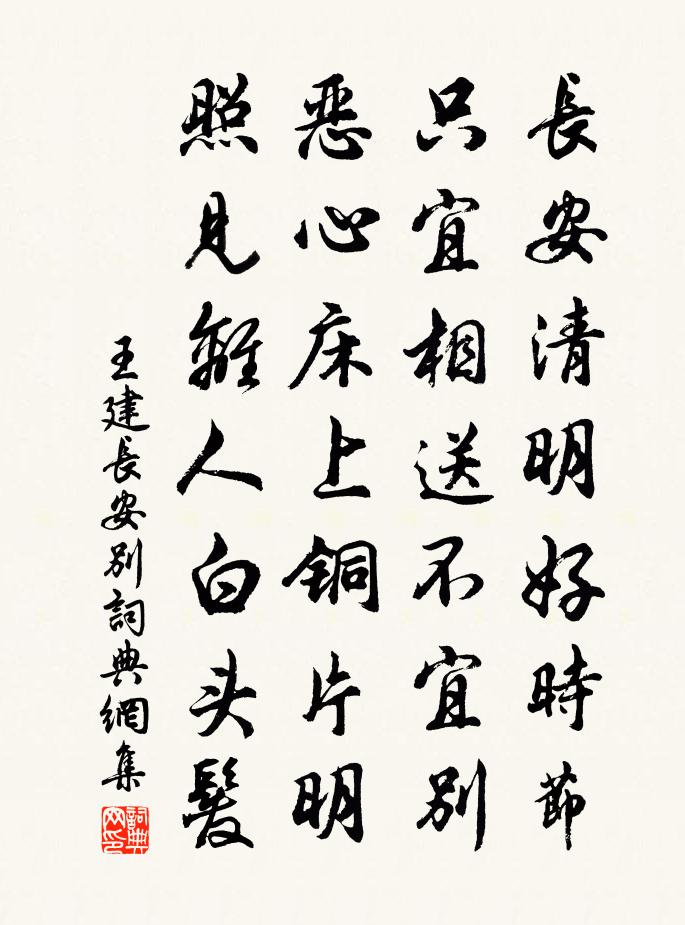 長安清明好時節
只宜相送不宜別
恶心床上铜片明
照見離人白头髮
王建長安別詞典網集
詞典网印